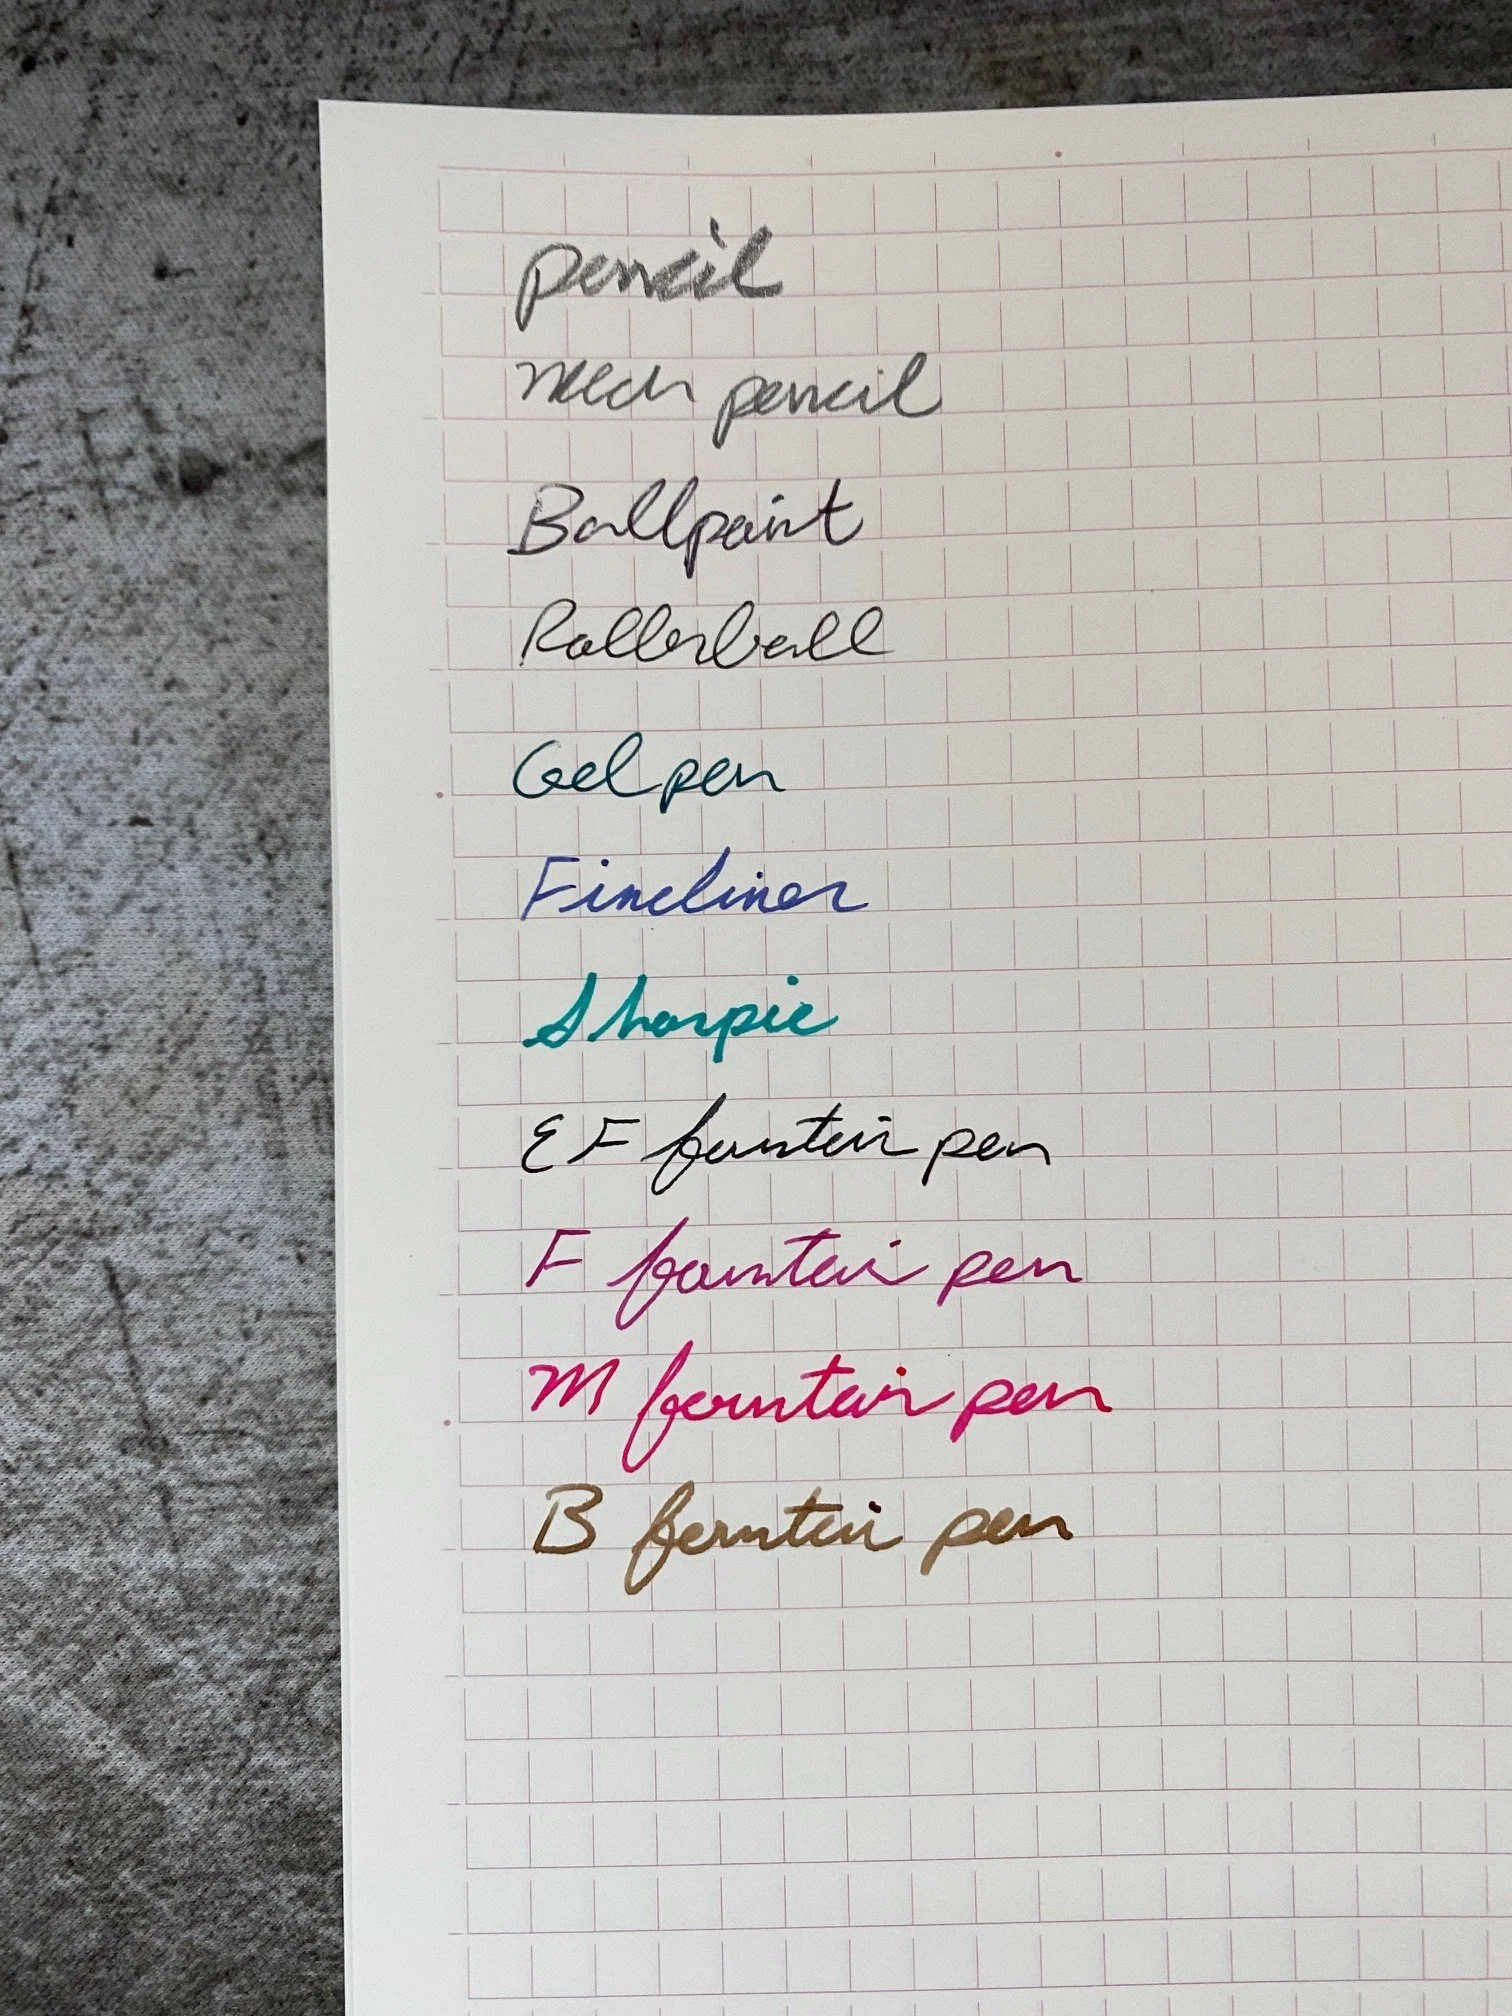 pencil
Mech pencil
Ballpoint
Rollerball
Gel pen
Fineliner
Sharpie
EF fountain pen
F fountain pen
M fountain pen
B fountain pen